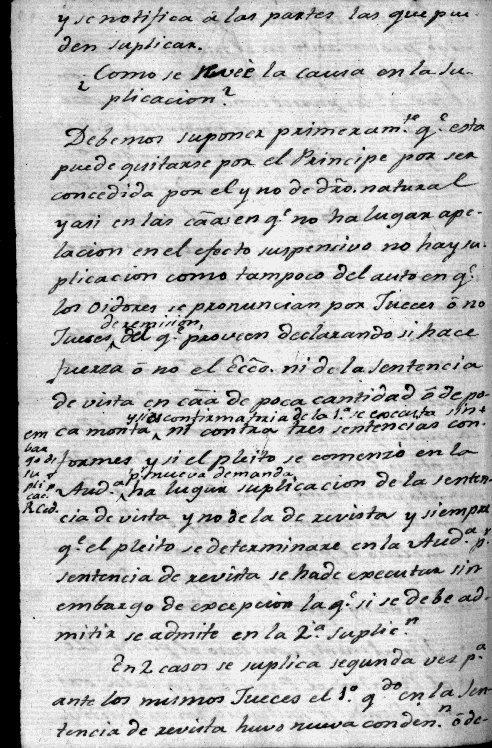 y se notifica â las partes las que pue-
den suplicar.
¿Como se reveè la causa en la su-
plicacion?
Debemos suponer primeram.te q.e esta
puede quitarse por el Principe por ser
concedida por el y no de dro. natural
y asi en las caãs en q.e no ha lugar ape-
lacion en el efecto suspensivo no hay su-
plicacion como tampoco del auto en q.e
los oidores se pronuncian por Jueces ô no
de remision,
Jueses del q.e proveen declarando si hace
fuerza ô no el Ecco. ni de la sentencia
de vista en caãã de poca cantidad ô de po-
y si es confirmatria de la 1.a se executa sin +
ca monta ni contra tres sentencias con-
em
bar
go de
su
pli
cac.
R. Ced.
formes y si el pleito se comenzó en la
p.r nueva demanda
Aud.a ha lugar suplicacion de la senten-
cia de vista y no de la de revista y siempre
q.e el pleito se determinare en la Aud.a p.r
sentencia de revista se ha de executar sin
embargo de excepcion la q.e si se debe ad-
mitir se admite en la 2.a suplic.n
En 2 casos se suplica segunda ves p.a
ante los mismos Jueces el 1.o q.do en la sen-
tencia de revista huvo nueva conden.n ô de-